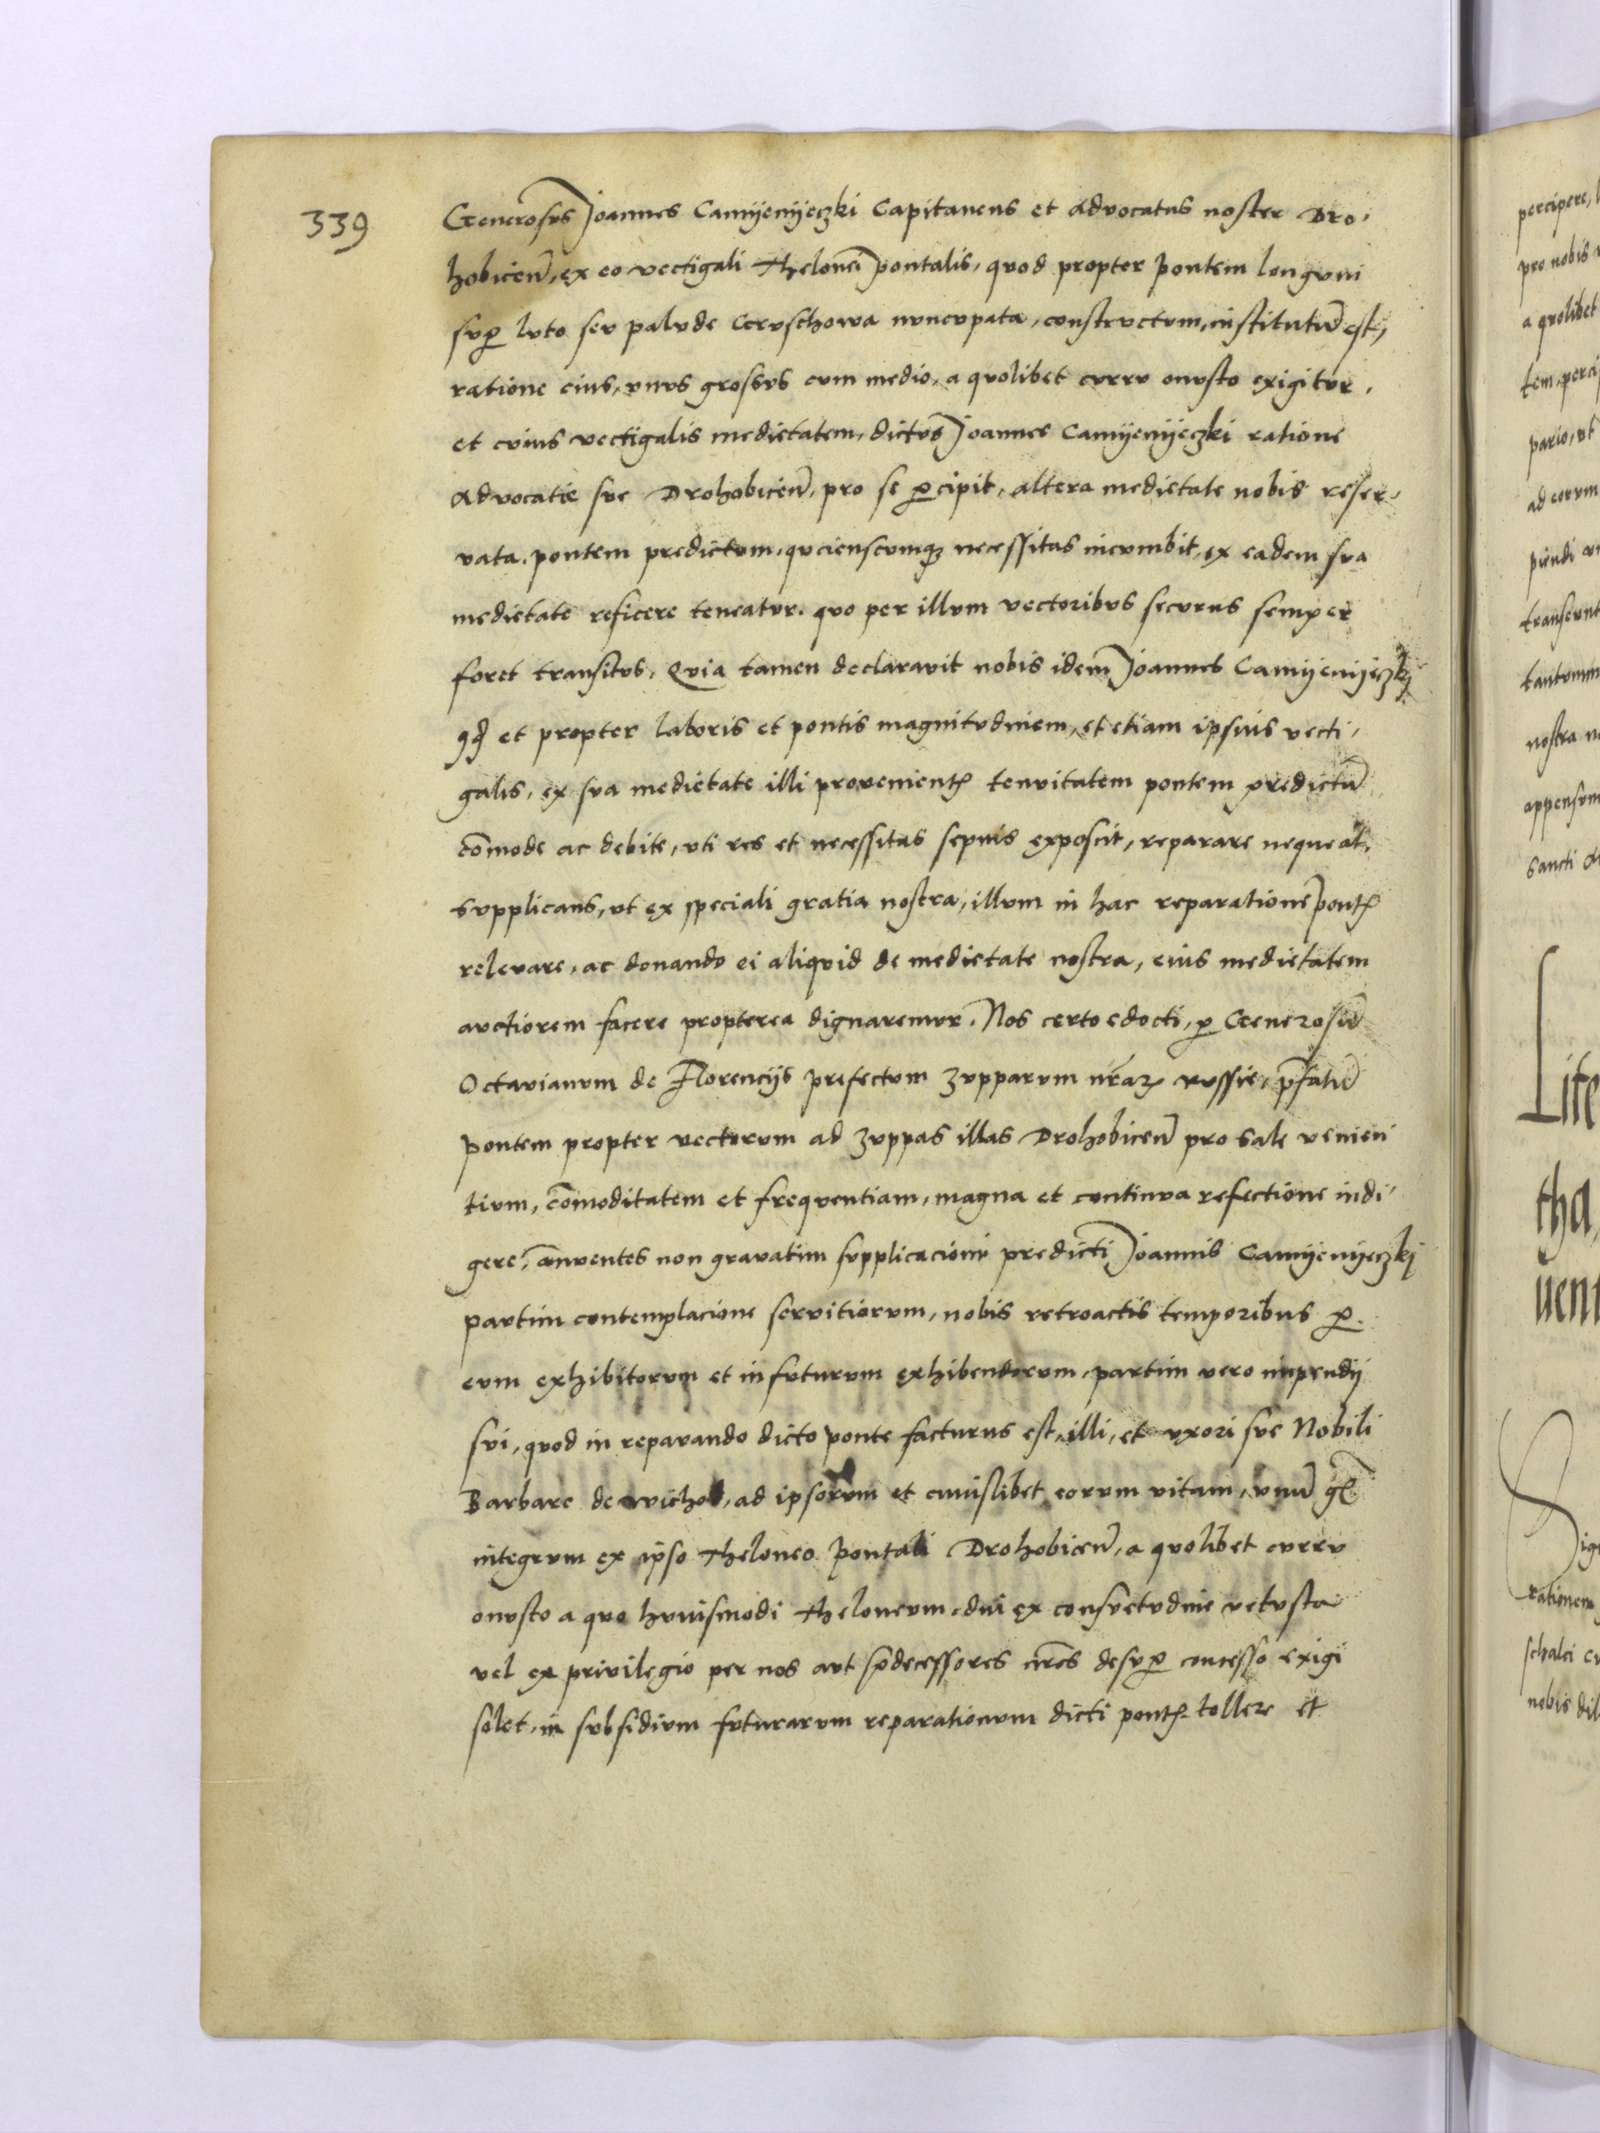 339
Generosus Joannes Camyenyeczki Capitaneus et Advocatus noster Dro,
hobicen̄, ex eo vectigali Thelonei pontalis, quod propter pontem longum
suꝑ luto seu palude Ceruschowa nuncupata, constructum, institutū est,
ratione eius, unus grossus cum medio, a quolibet curru onusto exigitur,
et cuius vectigalis medietatem, dictus Joannes Camyenyeczki ratione
Advocatie sue Drohobicen̄, pro se ꝑcipit, altera medietate nobis reser,
vata, pontem predictum, quocienscumqꝫ necessitas incumbit, ex eadem sua
medietate reficere teneatur, quo per illum vectoribus securus semper
foret transitus, Quia tamen declaravit nobis idem Joannes Camyenyeczki
qđ et propter laboris et pontis magnitudinem, et etiam ipsius vecti,
galis, ex sua medietate illi provenientꝭ tenuitatem pontem predictū
cōmode ac debite, uti res et necessitas sepius exposcit, reparare nequeat,
supplicans, ut ex speciali gratia nostra, illum in hac reparatione pontꝭ
relevare, ac donando ei aliquid de medietate nostra, eius medietatem
auctiorem facere propterea dignaremur, Nos certo edocti, ꝑ Generosū
Octavianum de Florencijs prefectum zupparum nr̄aꝝ russie, p̄fatū
pontem propter vectorum ad zuppas illas Drohobicen̄ pro sale venien
tium, cōmoditatem et frequentiam, magna et continua refectione indi,
gere, annuentes non gravatim supplicacioni predicti Joannis Camyenyeczki
partim contemplacione servitiorum, nobis retroactis temporibus ꝑ
eum exhibitorum et in futurum exhibendorum, partim vero impendij
sui, quod in reparando dicto ponte facturus est, illi, et uxori sue Nobili
Barbare de ad ipsorum et cuiuslibet eorum vitam, unū
integrum ex ipso Theloneo pontali Drohobicen̄, a quolibet curru
onusto a quo huiusmodi Theloneum, dui ex consuetudine vetusta
vel ex privilegio per nos aut p̄decessores nr̄os desuꝑ concesso exigi
solet, in subsidium futurarum reparationum dicti pontꝭ tollere et
percipere,
pro nobis
a quolibet
tem, perci
pario, ut
ad eorum
piendi
transeunt
tantumm
nostra
appensum
Sancti
Lite
tha,
uent
Sig
rationem
schalci
nobis dil